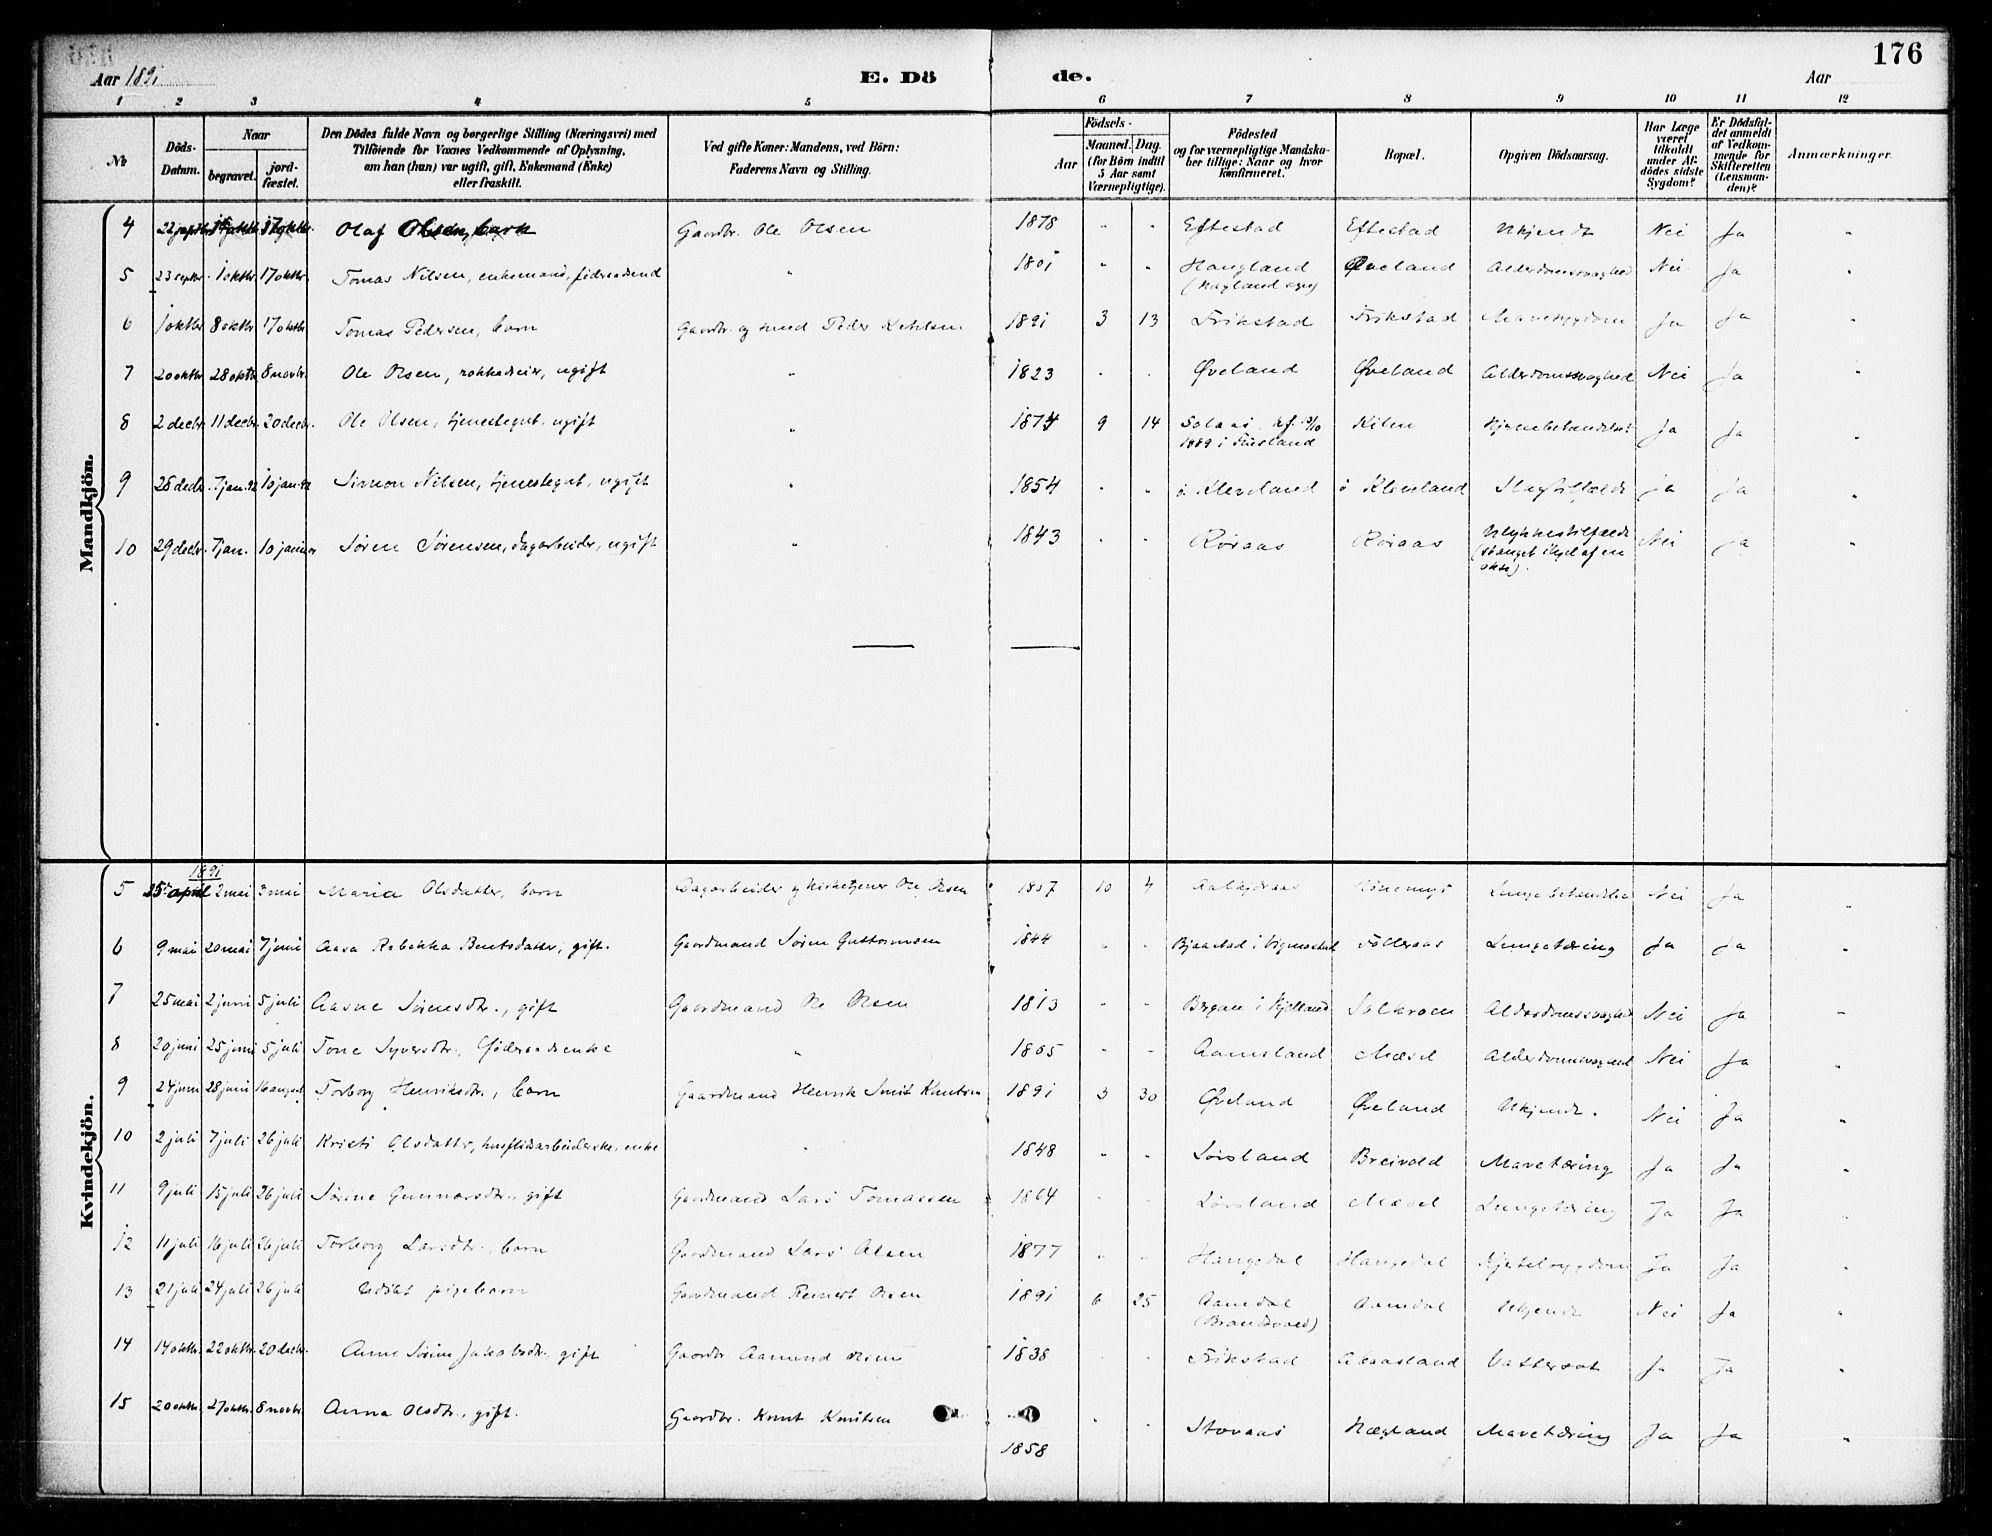 176
Aar 1891 E. Dö de. Aar
1 2 3 4 5 6 7 8 9 10 11 12
No
Döds-Datum.
Naar
begravet. jordfæstet.
Den Dödes fulde Navn og borgerlige Stilling (Næringsvei) med
Tilföiende for Voxnes Vedkommende af Oplysning,
om han (hun) var ugift, gift, Enkemand (Enke)
eller fraskilt.
Ved gifte Koner: Mandens, ved Börn:
Faderens Navn og Stilling.
Födsels-
Aar Maaned. Dag.
(for Börn indtil
5 Aar samt
Værnepligtige).
Födested
og for værnepligtige Mandskaber tillige: Naar og hvor
konfirmeret.
Bopæl.
Opgiven Dödsaarsag.
Har Læge
været
tilkaldt
under Afdödes sidste
Sygdom?
Er Dödsfaldet anmeldt
af Vedkommende for
Skifteretten
(Lensmanden)?
Anmærkninger.
Mandkjön.
4 22 septbr. oktbr. 17 oktbr. Olaf Olsen, barn Gaardbr. Ole Olsen 1878 " " Eftestad Eftestad Ukjendt Nei Ja "
5 23 septbr. 1 oktbr. 17 oktbr. Tomas Nilsen, enkemand, föderaadsmand " 1801 " " Haugland Øveland Alderdomssvaghed Nei Ja "
6 1 oktbr 8 oktbr 17 oktbr Tomas Pedersen, barn Gaardbr. og smed Peder Kehlsen 1891 3 13 Frikstad Frikstad Mavesygdom Ja Ja "
7 20 oktbr 28 oktbr 8 novbr. Ole Olsen, rokkedreier, ugift " 1823 " " Øveland Øveland Alderdomssvaghed Nei Ja "
8 2 decbr. 11 decbr. 20 decbr. Ole Olsen, tjenestegut, ugift " 1874 9 14 Solaas, kf.
1889 i Finsland Kilen Ja Ja "
9 28 decbr. 7 jan. 92 10 jan. 92 Simon Nilsen, tjenestegut, ugift " 1854 " " ö. Kleveland ö Kleveland Slagtilfælde Ja Ja "
10 29 decbr. 7 jan. 10 januar Sören Sörensen, dagarbeider, ugift " 1843 " " Röiaas Röiaas Ulykkestilfælde
(stanget ihjel af en
okse). Nei Ja "
Kvindekjön.
1891
5 25 april 2 mai 3 mai Maria Olsdatter, barn Dagarbeider og kirketjener Ole Olsen 10 4 Nei Ja "
6 9 mai 20 mai 7 juni Aasa Rebekka Bentsdatter, gift. Gaardmand Sören Guttormsen 1844 " " Bjaastad i Vigmostad Fölleraas Lungetæring Ja Ja "
7 25 mai 2 juni 5 juli Aasne Sörensdtr., gift Gaardmand Ole Olsen 1813 " " Alderdomssvaghed Nei Ja "
8 20 juni 25 juni 5 juli Tone Syversdtr., föderaadsenke " 1805 " " Aamsland Mæsel Alderdomssvaghed Nei Ja "
9 24 juni 28 juni 16 august Torborg Henriksdtr., barn Gaardmand Henrik Smit Knutsen 1891 3 30 Øveland Øveland Ukjendt. Nei Ja "
10 2 juli 7 juli 26 juli Kristi Olsdatter, husflidsarbeiderske, enke " 1848 " " Löisland Breivold Mavetæring Ja Ja "
11 9 juli 15 juli 26 juli Sörine Gunnarsdtr., gift Gaardmand Lars Tomassen 1864 " " Löisland Mæsel Lungetæring Ja Ja "
12 11 juli 16 juli 26 juli Torborg Larsdtr., barn Gaardmand Lars Olsen 1877 " " Haugedal Haugedal Kjertelsygdom Ja Ja "
13 21 juli 24 juli 26 juli Udöbt pigebarn Gaardmand Reinert Olsen 1891 6 25 Aamdal
(Brandsvold) Aamdal Ukjendt Nei Ja "
14 14 oktbr. 22 oktbr. 20 decbr. Anne Sörine Jakobsdtr., gift Gaardbr Aanund Olsen 1838 " " Frikstad Abaasland Vattersot Ja Ja "
15 20 oktbr. 27 oktbr. 8 novbr. Anna Olsdtr., gift. Gaardbr. Knut Knutsen 1858 " " Stovaas Hægland Mavetæring Ja Ja "